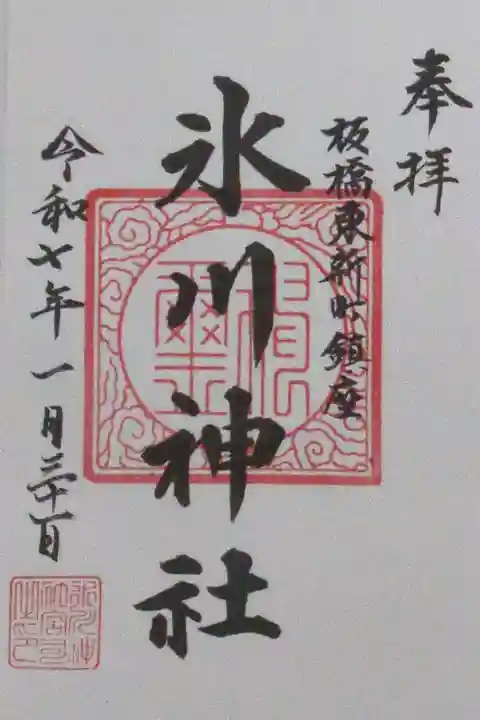 奉拝
板橋東新町鎮座
氷川神社
令和七年一月三十一日